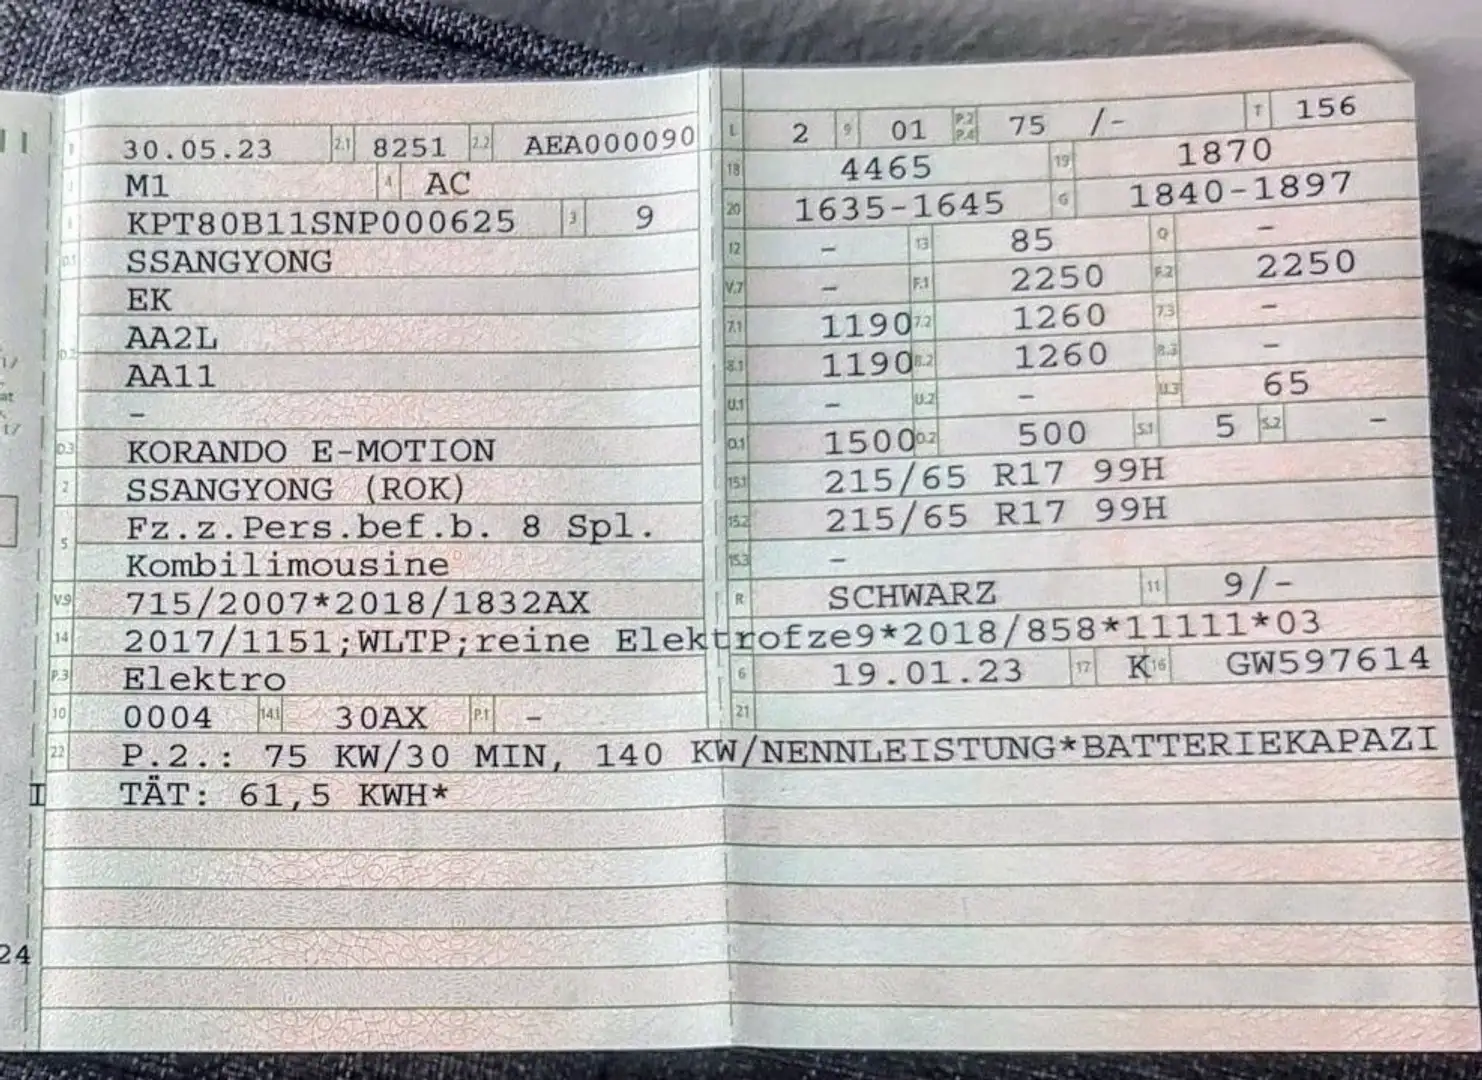 B 30.05.23 2.1 8251 2.2 AEA000090
J M1 4 AC
E KPT80B11SNP000625 3 9
D.1 SSANGYONG
EK
D.2 AA2L
AA11
-
D.3 KORANDO E-MOTION
2 SSANGYONG (ROK)
5 Fz.z.Pers.bef.b. 8 Spl.
Kombilimousine
V.9 715/2007*2018/1832AX
14 2017/1151;WLTP;reine Elektrofz
P.3 Elektro
10 0004 14.1 30AX P.1 -
L 2 9 01 P.2 P.4 75 /- T 156
18 4465 19 1870
20 1635-1645 G 1840-1897
12 - 13 85 Q -
V.7 - F.1 2250 F.2 2250
7.1 1190 7.2 1260 7.3 -
8.1 1190 8.2 1260 8.3 -
U.1 - U.2 - U.3 65
O.1 1500 O.2 500 S.1 5 S.2 -
15.1 215/65 R17 99H
15.2 215/65 R17 99H
15.3 -
R SCHWARZ 11 9/-
e9*2018/858*11111*03
6 19.01.23 17 K 16 GW597614
21
22 P.2.: 75 KW/30 MIN, 140 KW/NENNLEISTUNG*BATTERIEKAPAZI
TÄT: 61,5 KWH*
24